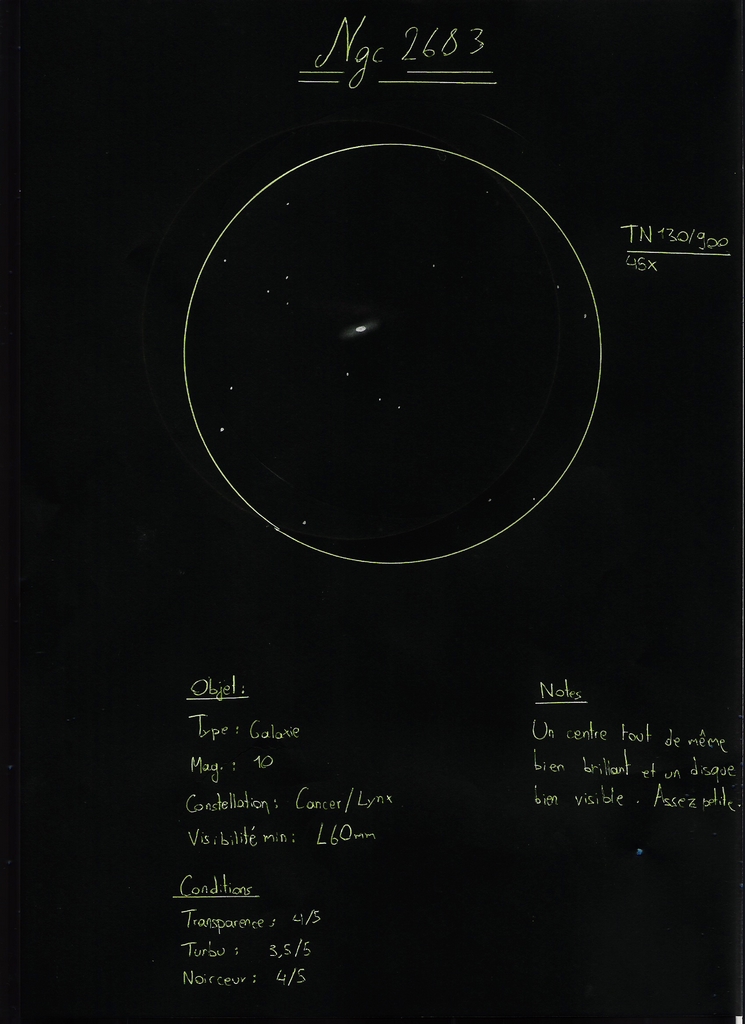 Ngc 2683
TN 130/900
45x
Objet:
Type : Galaxie
Mag. : 10
Constellation : Cancer/Lynx
Visibilité min : L60mm
Conditions
Transparence : 4/5
Turbu : 3,5/5
Noirceur : 4/5
Notes
Un centre tout de même
bien brillant et un disque
bien visible. Assez petite.